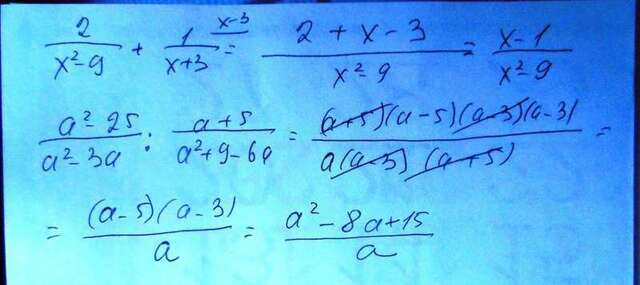 2/(x²-9) + 1/(x+3) ^(x-3) = (2+x-3)/(x²-9) = (x-1)/(x²-9)
(a²-25)/(a²-3a) : (a+5)/(a²+9-6a) = ((a+5)(a-5)(a-3)(a-3))/(a(a-3)(a+5)) =
= ((a-5)(a-3))/a = (a²-8a+15)/a